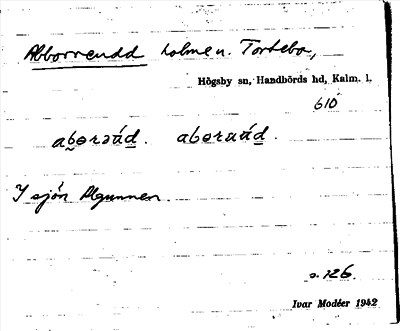 Abborrendd holme u. Tortebo,
Högsby sn, Handbörds hd, Kalm. l.
610
I sjön Algunnen.
s. 126.
Ivar Modéer 1942